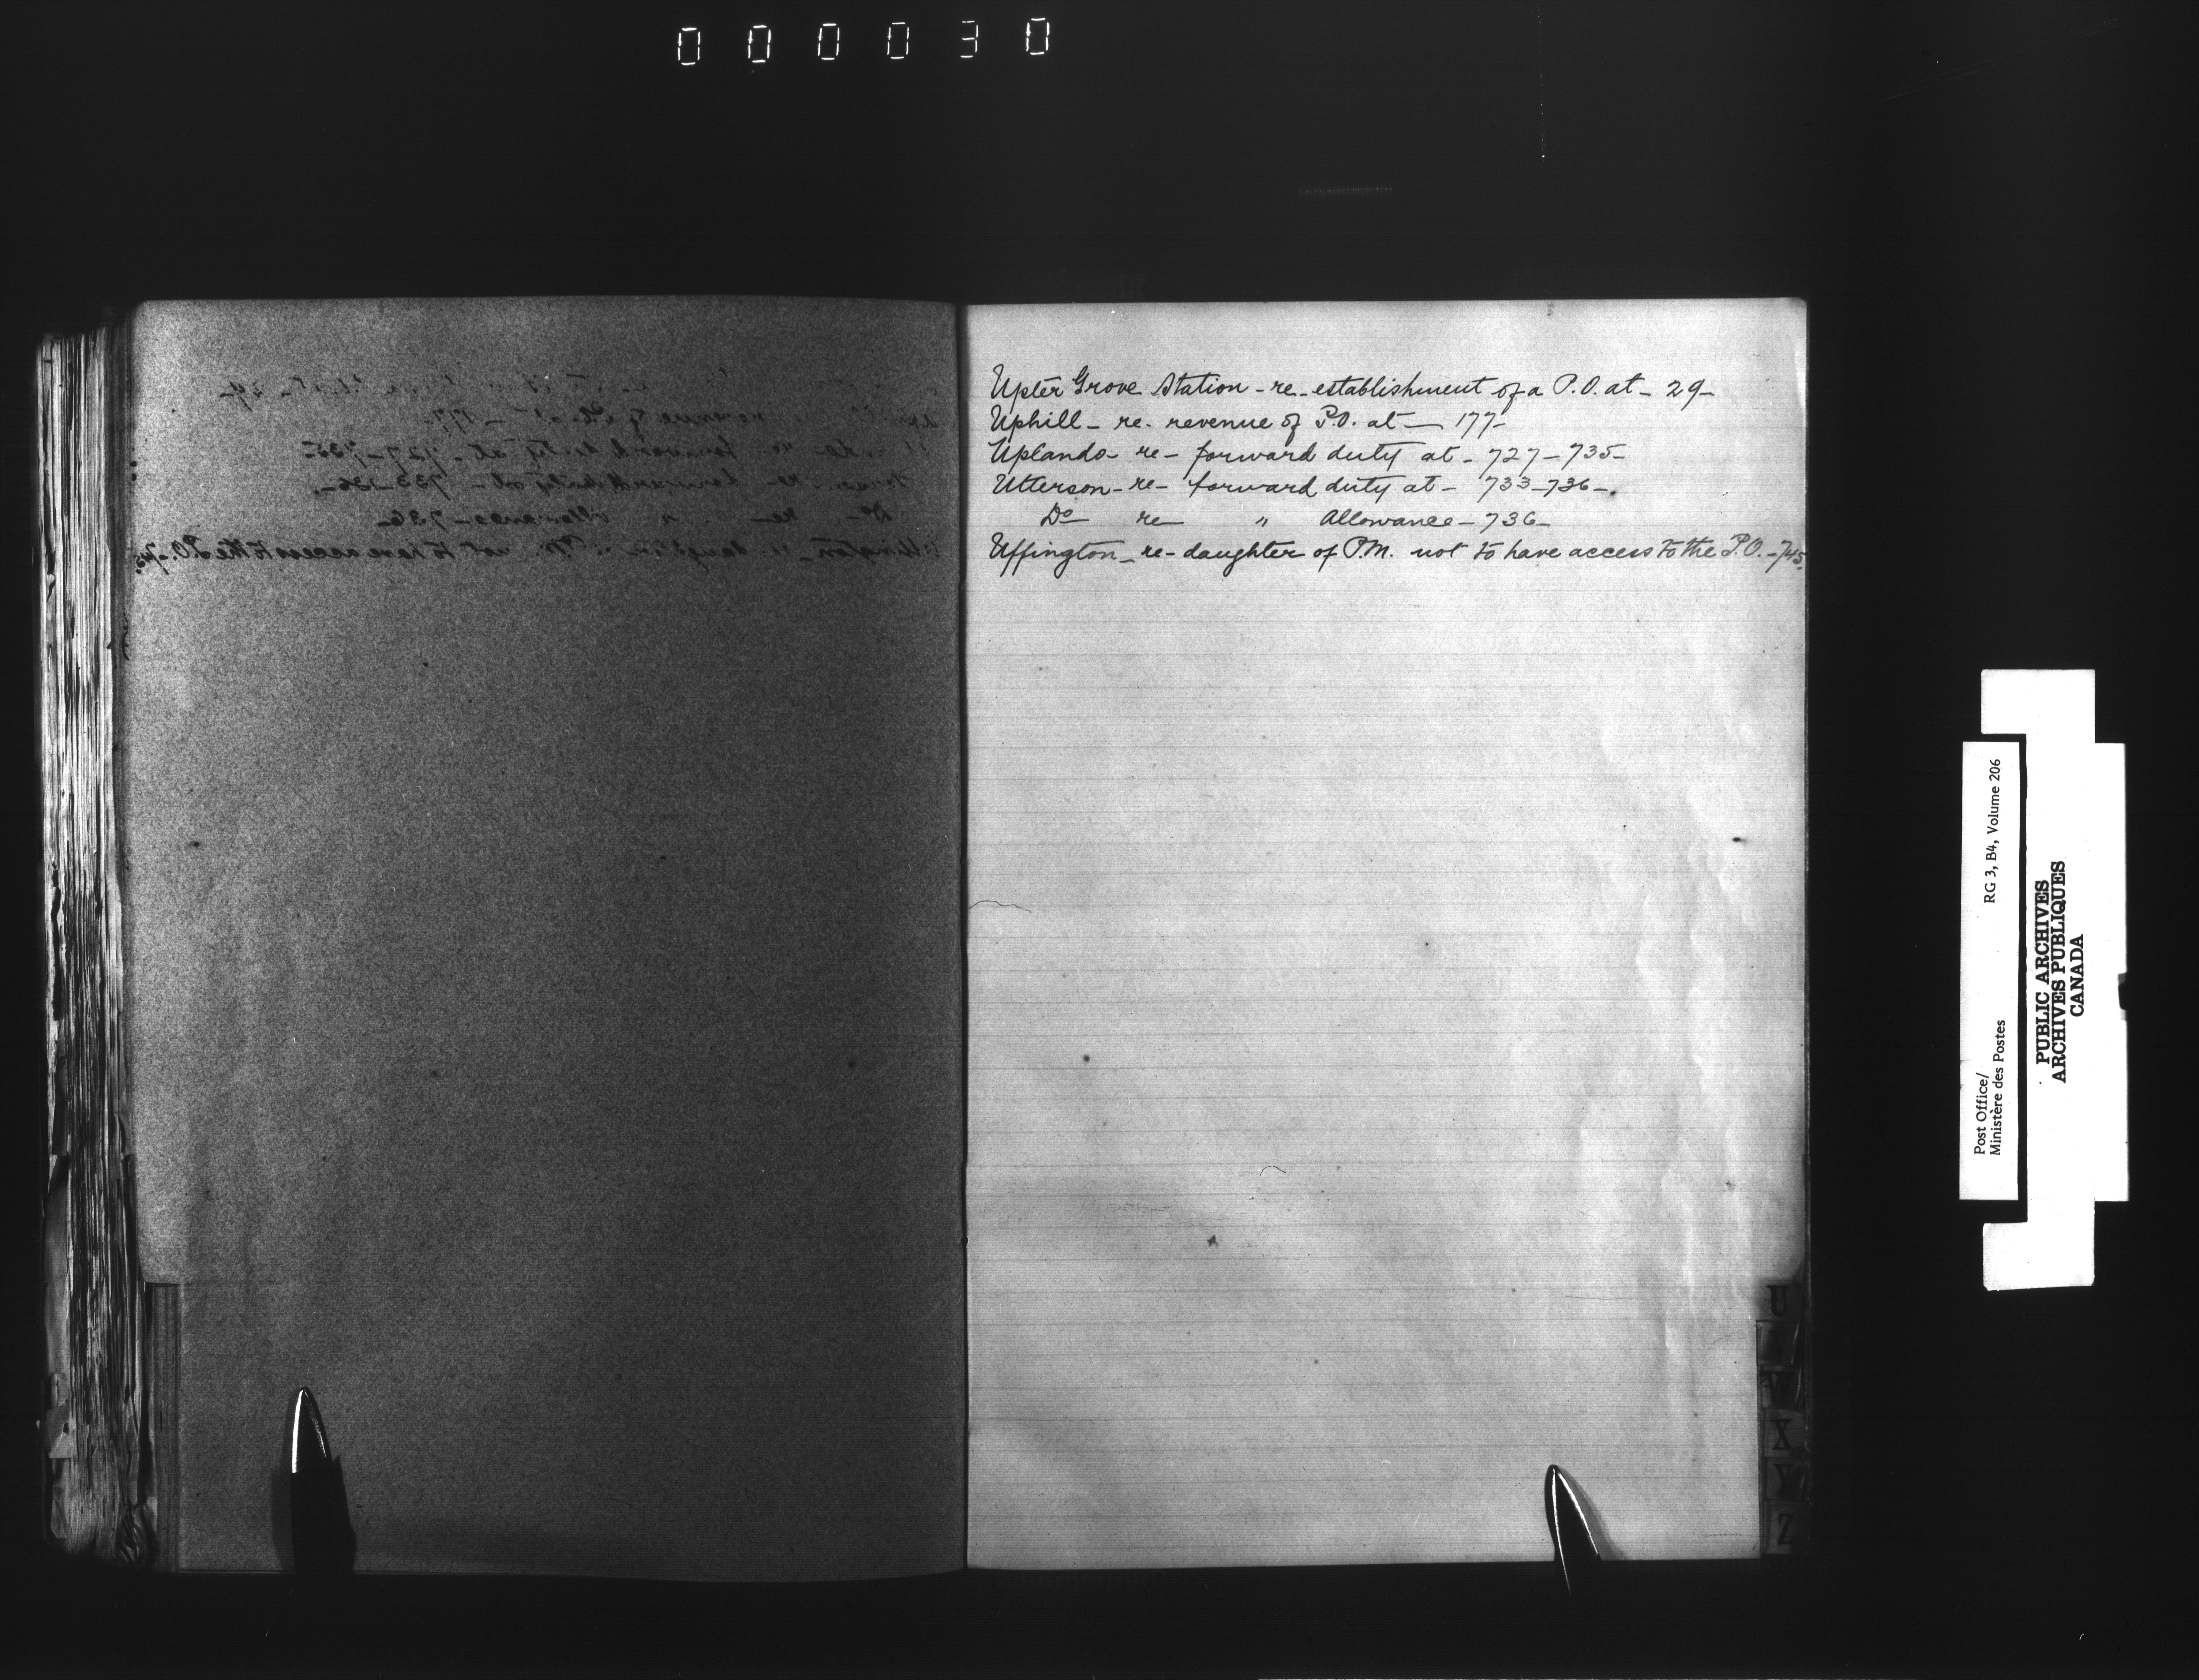 000030
Upter Grove Station - re - establishment of a P.O. at - 29 -
Uphill - re - revenue of P.O. at - 177 -
Uplands - re - forward duty at - 727 - 735 -
Utterson - re - forward duty at - 733 - 736 - .
Do re " Allowance - 736 -
Uffington - re - daughter of P.M. not to have access to the P.O. - 745.
U
V
X
Y
Z
Post Office/
Ministère des Postes
RG 3, B4, Volume 206
PUBLIC ARCHIVES
ARCHIVES PUBLIQUES
CANADA